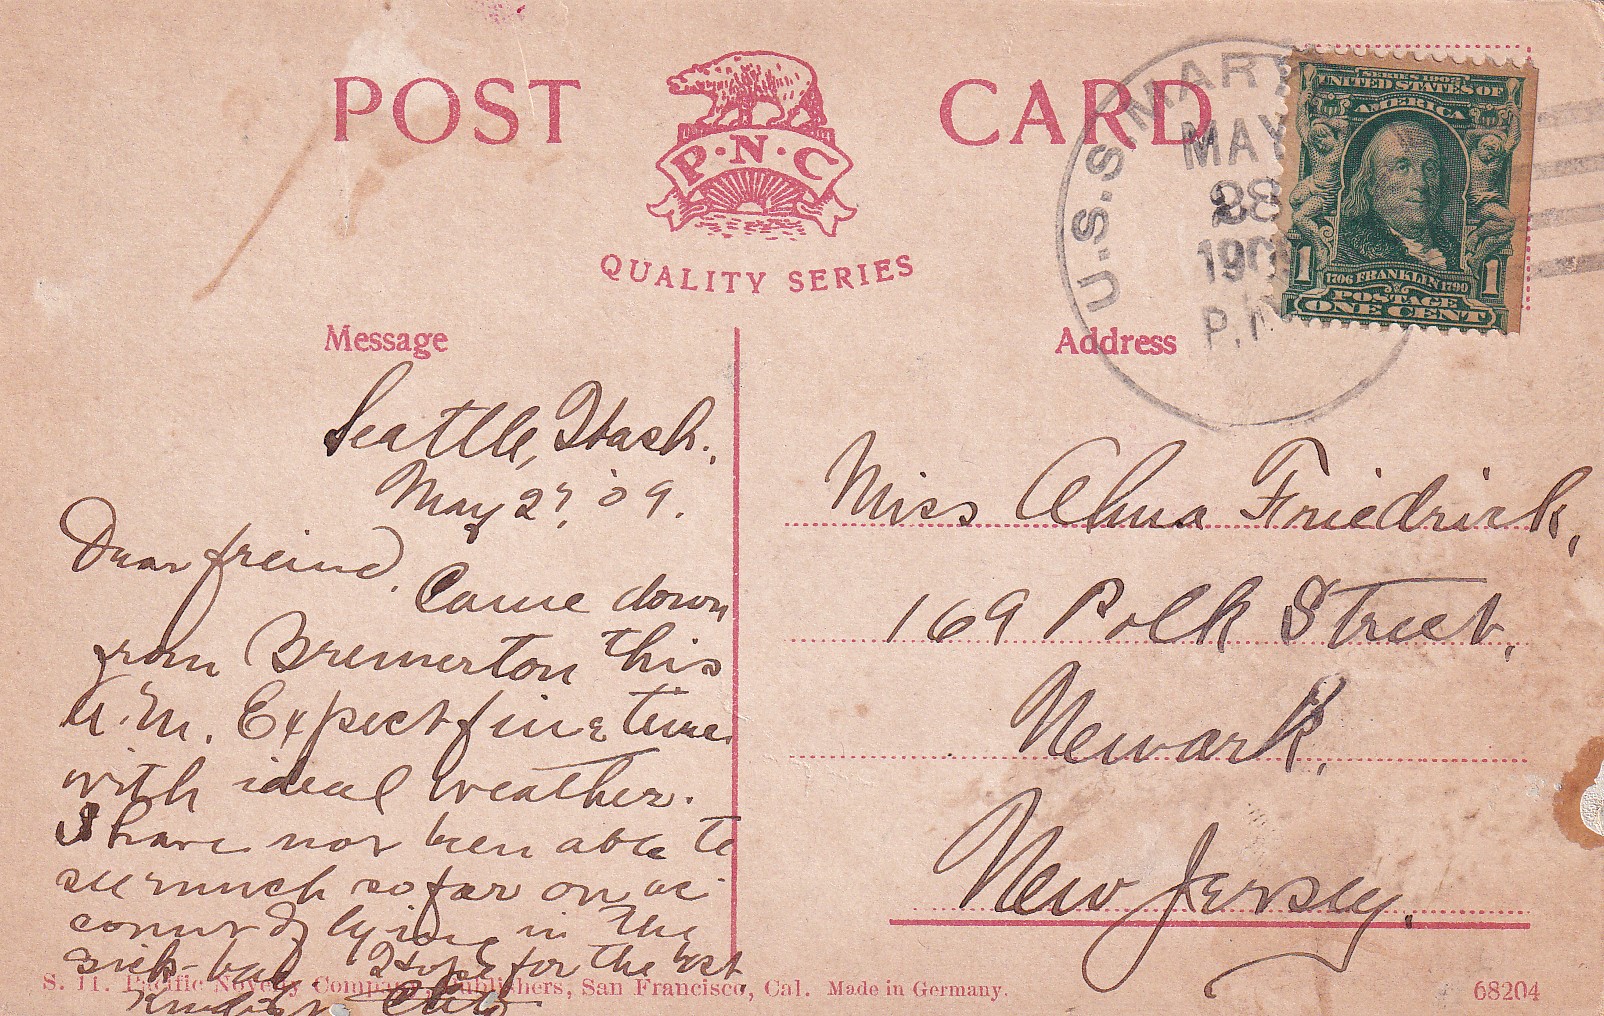 POST CARD
P·N·C
QUALITY SERIES
U.S.S. MARY
MAY
28
1909
P.M
SERIES 1902
UNITED STATES OF
AMERICA
1 1706 FRANKLIN 1790 1
POSTAGE
ONE CENT
Message
Seattle, Wash.,
May 27, '09.
Dear freind. Came down
from Bremerton this
a.m. Expect fine time
with ideal weather.
I have not been able to
see much so far on ac-
count of lying in the
sick-bay Hope for the best
Address
Miss Alma Friedrick,
169 Polk Street,
Newark,
New Jersey.
S. 11. Pacific Novelty Company, Publishers, San Francisco, Cal. Made in Germany.
68204